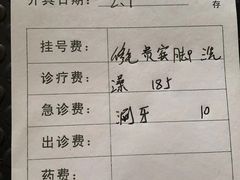 开具日期：2.1
存
挂号费：修贵宾脚 洗
诊疗费：澡 185
急诊费：涮牙 10
出诊费：
药费：